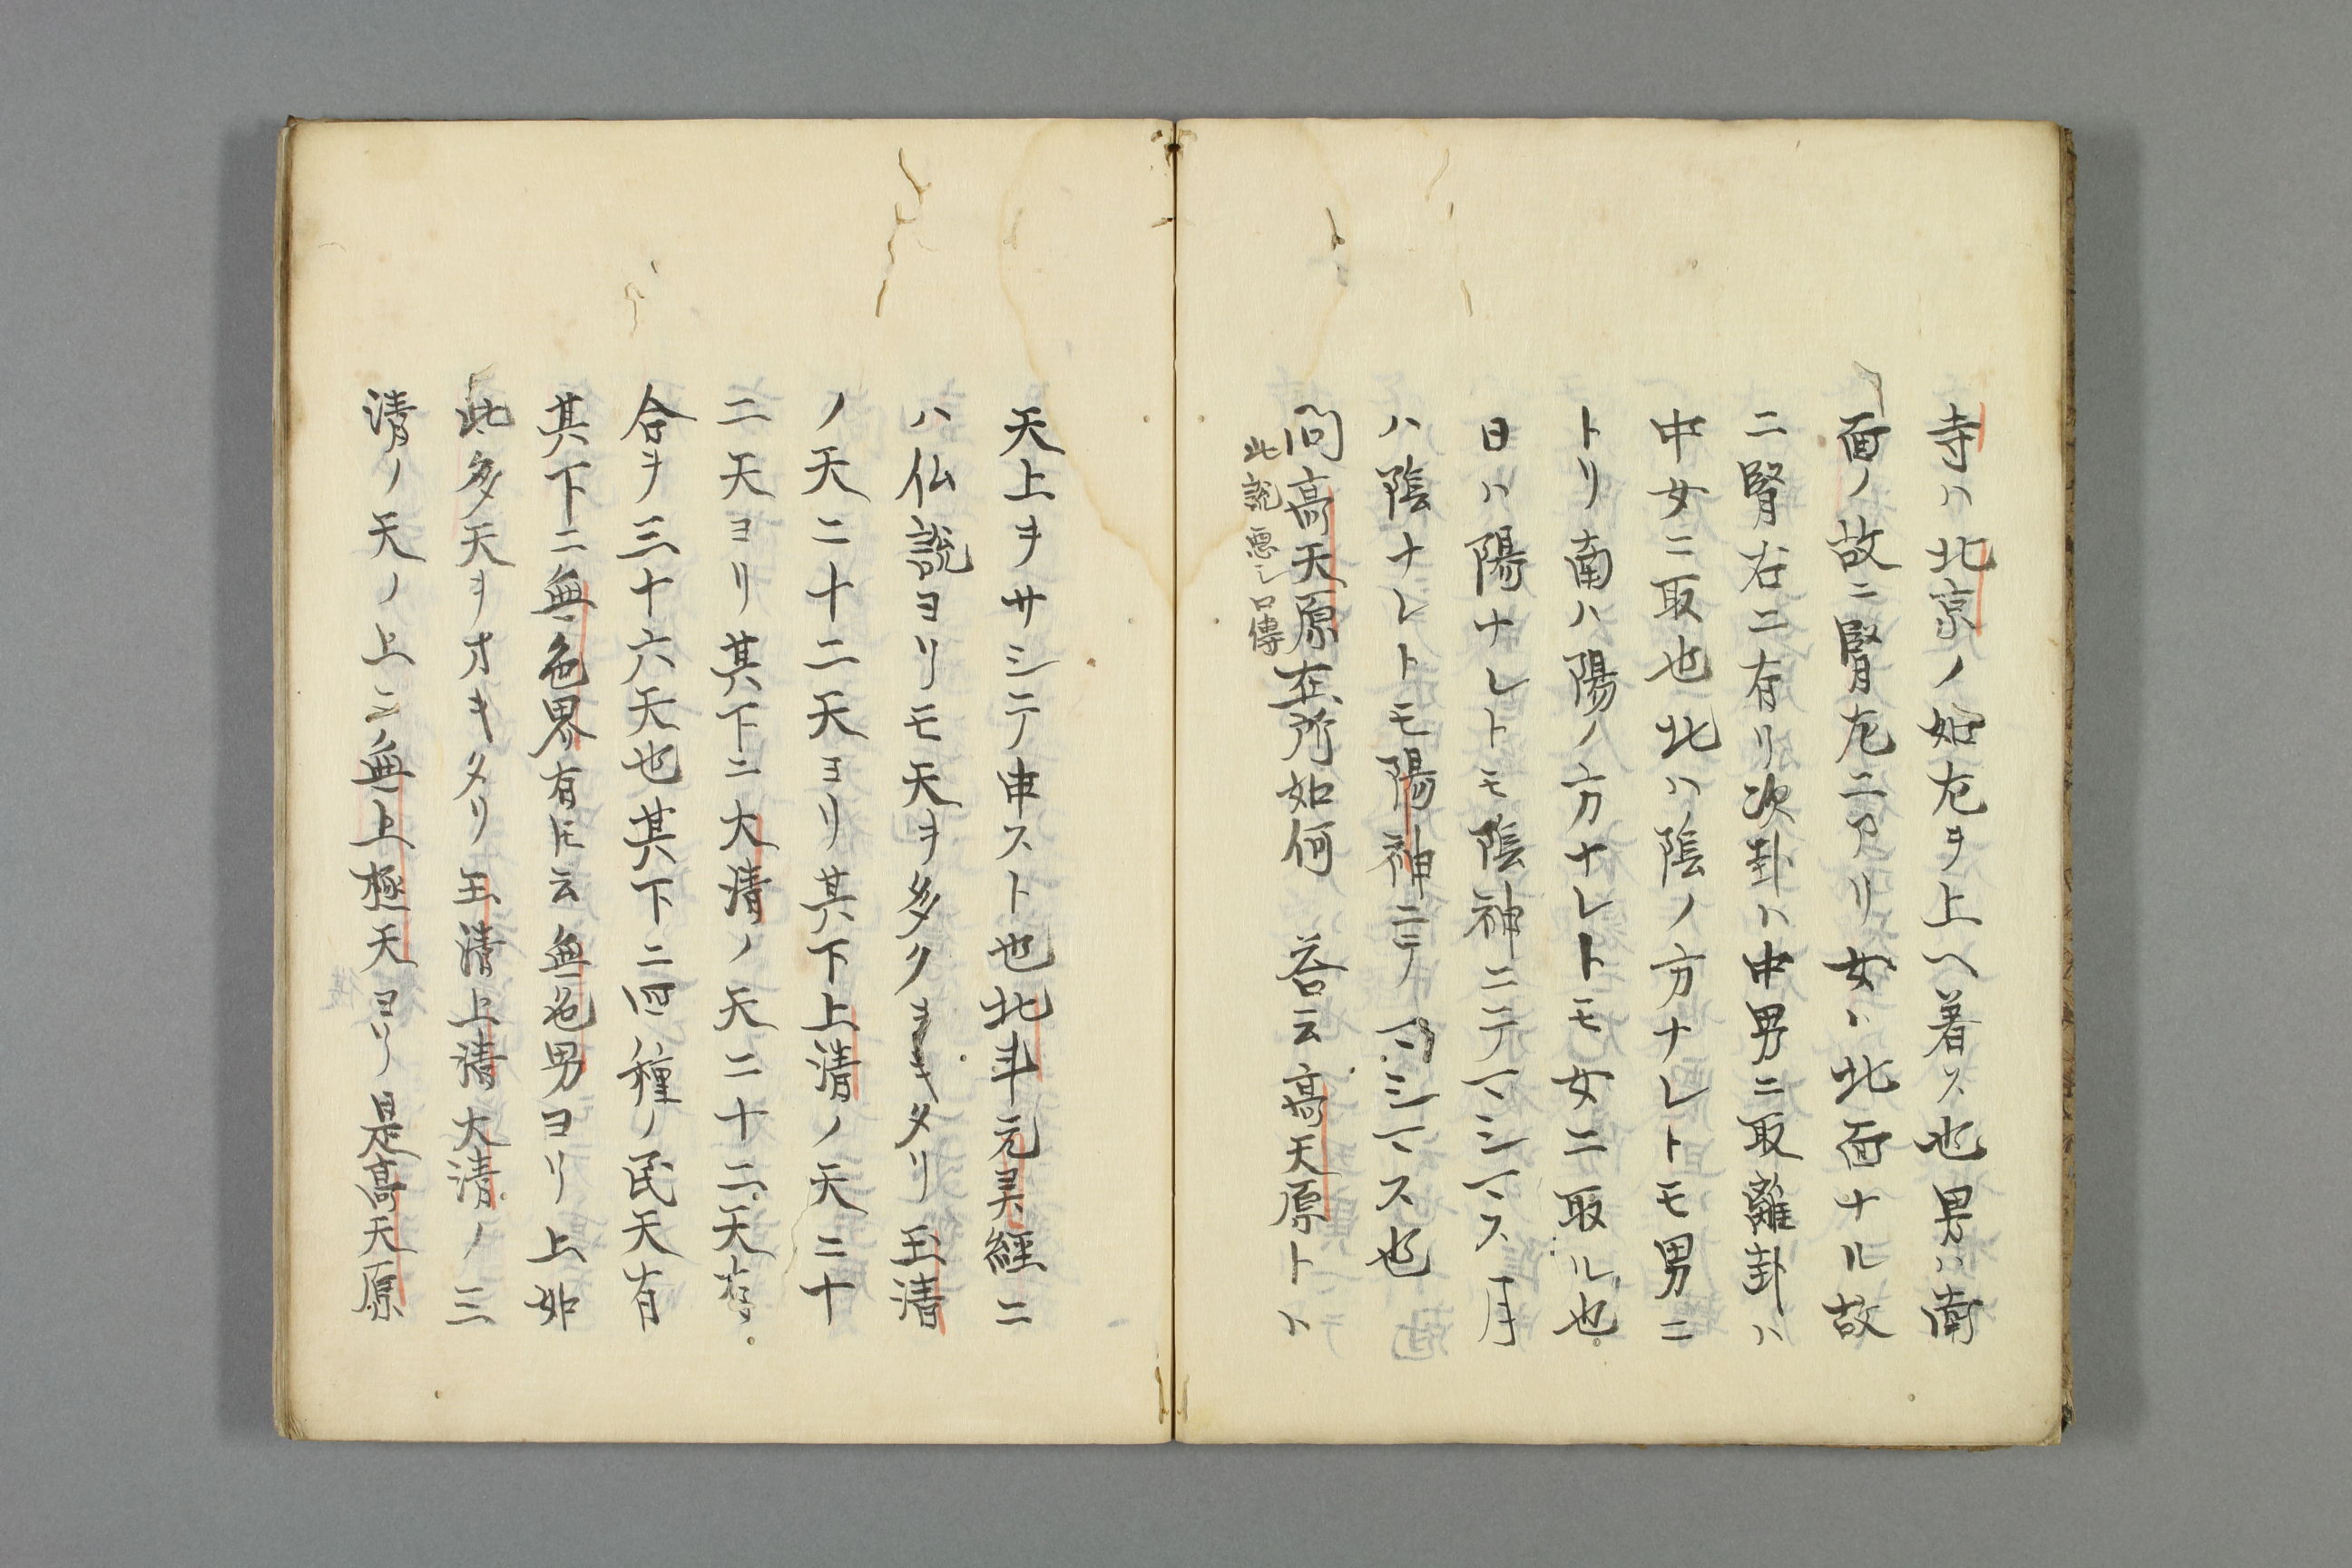 寺ハ北京ノ始左ヲ上ヘ著ス也男ハ南
面ノ故ニ腎左ニアリ女ハ北面ナル故
ニ腎右ニ有リ次卦ハ中男ニ取離卦ハ
中女ニ取也北ハ陰ノ方ナレトモ男ニ
トリ南ハ陽ノ方ナレトモ女ニ取ル也
日ハ陽ナレトモ陰神ニテマシマス月
ハ陰ナレトモ陽神ニテマシマス也
問高天原在所如何 答云高天原トハ
此説 口傳
天上ヲサシテ申スト也北斗元灵経ニ
ハ仏説ヨリモ天ヲ多クヲキタリ玉清
ノ天二十二天ヨリ其下上清ノ天二十
二天ヨリ其下ニ大清ノ天二十二天
合ヲ三十六天也其下ニ四種ノ民天有
其下ニ無色界有ト云無色界ヨリ上如
此多天ヲオキタリ玉清上清大清ノ三
清ノ天ノ上ニ無上極天ヨリ是高天原